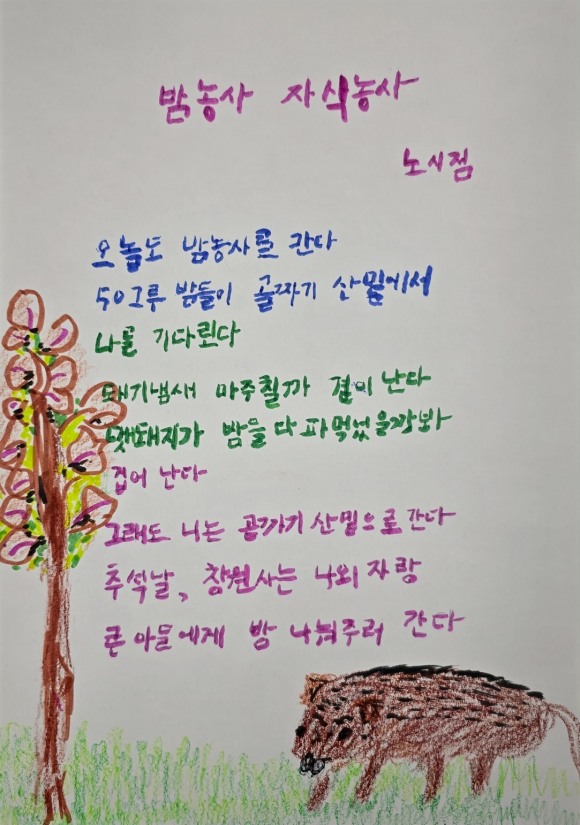 밤농사 자식농사
노시점
오늘도 밤농사를 간다
50그루 밤들이 골짜기 산밑에서
나를 기다린다
돼기냄새 마주칠까 겁이 난다
맷돼지가 밤을 다 파먹었을까봐
겁이 난다
그래도 나는 골짜기 산밑으로 간다
추석날, 창원사는 나의 자랑
큰아들에게 밤 나눠주러 간다